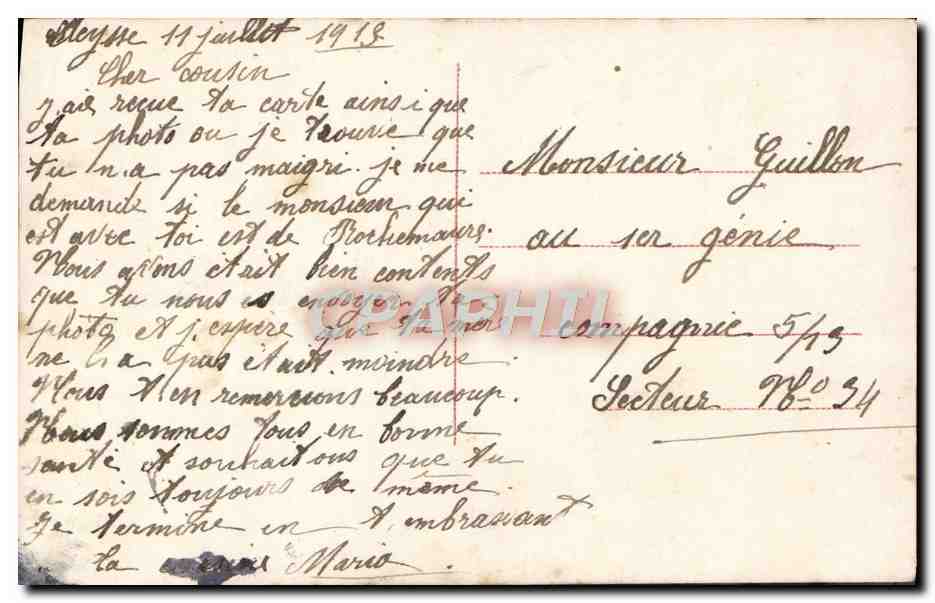 Meysse 11 juillet 1915
Cher cousin
J ai reçue ta carte ainsi que
ta photo ou je trouve que
tu n a pas maigri. je me
demande si le monsieur qui
est avec toi est de Rochemaure.
Nous avons était bien contents
que tu nous es envoyer ta
photo et j espère que ta mère
ne l a pas était moindre
Nous t en remercions beaucoup.
Nous sommes tous en bonne
santé et souhaitons que tu
en sois toujours de même.
Je termine en t embrassant
ta cousine Maria
Monsieur Guillon
au 1er génie
compagnie 5/13
Secteur No 34
CPAPHIL